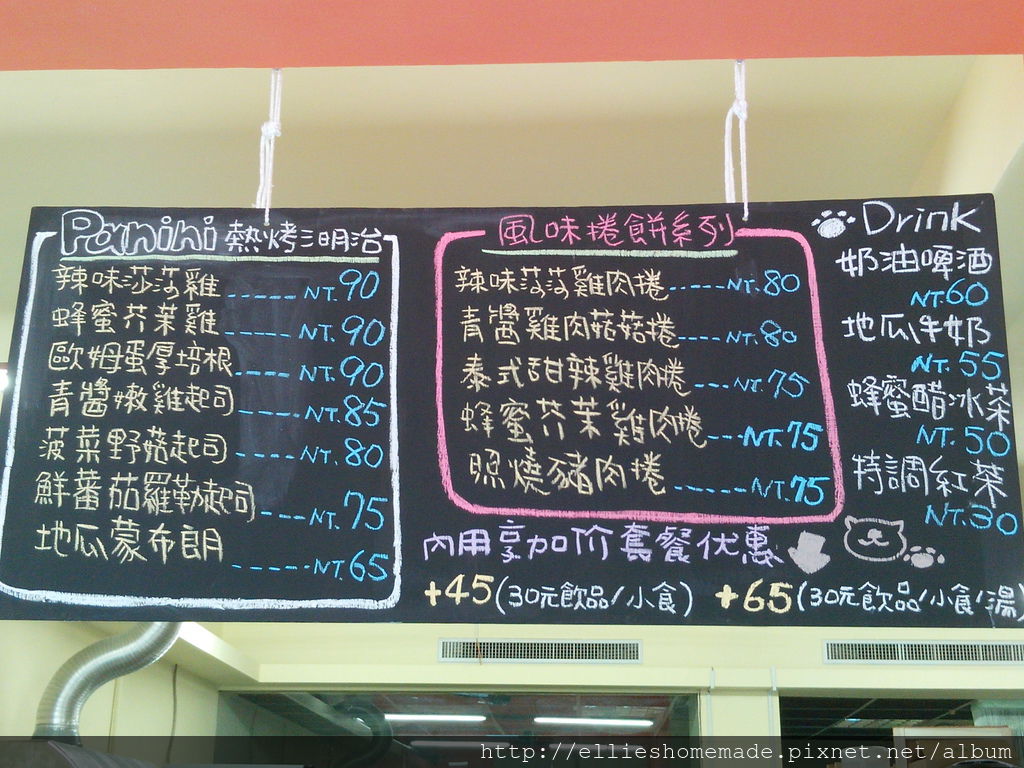 Panini 熱烤三明治
辣味莎莎雞 ----- NT.90
蜂蜜芥茉雞 ----- NT.90
歐姆蛋厚培根 --- NT.90
青醬嫩雞起司 --- NT.85
菠菜野菇起司 --- NT.80
鮮蕃茄羅勒起司 --- NT.75
地瓜蒙布朗 ------ NT.65
風味捲餅系列
辣味莎莎雞肉捲 ----- NT.80
青醬雞肉菇菇捲 ---- NT.80
泰式甜辣雞肉捲 --- NT.75
蜂蜜芥茉雞肉捲 --- NT.75
照燒豬肉捲 ------ NT.75
Drink
奶油啤酒
NT.60
地瓜牛奶
NT.55
蜂蜜醋冰茶
NT.50
特調紅茶
NT.30
內用享加价套餐优惠
+45(30元飲品/小食) +65(30元飲品/小食/湯)
http://ellieshomemade.pixnet.net/album